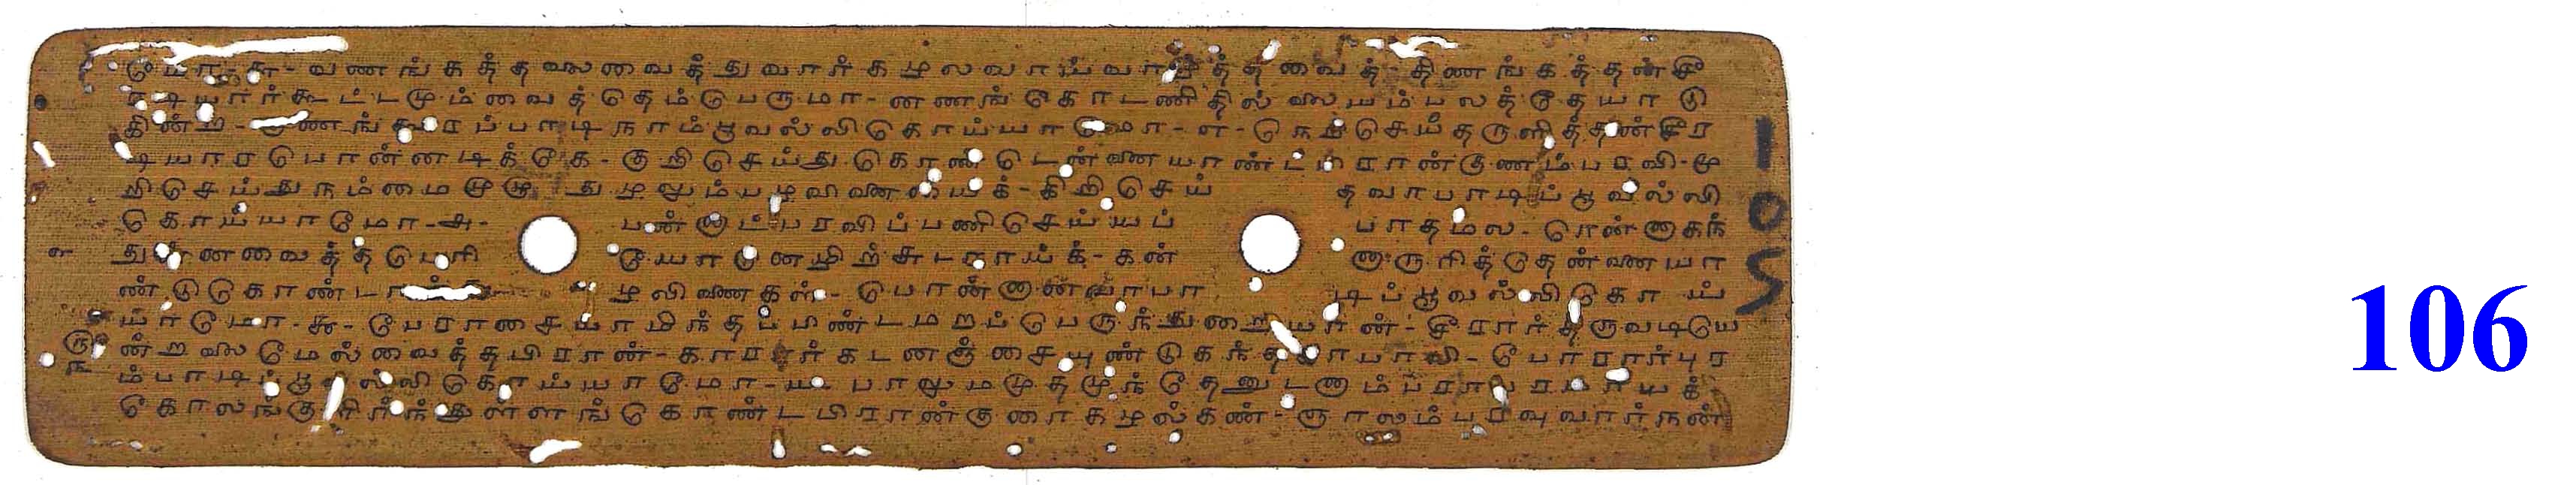 மோ-சு-வணங்கத்தலைவைத்துவார்கழலவாய்வாழ்த்தவைத்-திணங்கத்தன்சீ
ரடியார்கூட்டமும்வைத்தெம்பெருமா-னணங்கோடணிதில்லையம்பலத்தேயாடு
கின்ற-குணங்கூரப்பாடிநாம்பூவல்லிகொய்யாமோ-எ-நெறிசெய்தருளித்தன்சீர
டியாரபொன்னடிக்கே-குறிசெய்துகொண்டென்னையாண்டபிரான்குணம்பரவி-மு
றிசெய்துநம்மைமுழு துழலும்பழவினையைக்-கிறிசெய் தவாபாடிப்பூவல்லி
கொய்யாமோ-அ- பன்னாட்பரவிப்பணிசெய்யப் பாதமல-ரென்னாகந்
துன்னவைத்தபெரி யோனெழிற்சுடராய்க்-கன் னாருரித்தென்னையா
ண்டுகொண்டான்க ழலிணைகள்-பொன்னானவாபா டிப்பூவல்லிகொ ய்
யாமோ-கூ-பேராசையாமிந்தப்பிண்டமறப்பெருந்துறையான்-சீரார்திருவடியெ
ன்றலைமேல்வைத்தபிரான்-காரார்கடனஞ்சையுண்டுகந்தகாபாலி-போரார்புர
ம்பாடிப்பூவல்லிகொய்யாமோ-ய-பாலுமமுதமுந்தேனுடனாம்பராபரமாயக்
கோலங்குளிர்ந்துள்ளங்கொண்டபிரான்குரைகழல்கண்-ஞாலம்பரவுவார்நன்
105
106